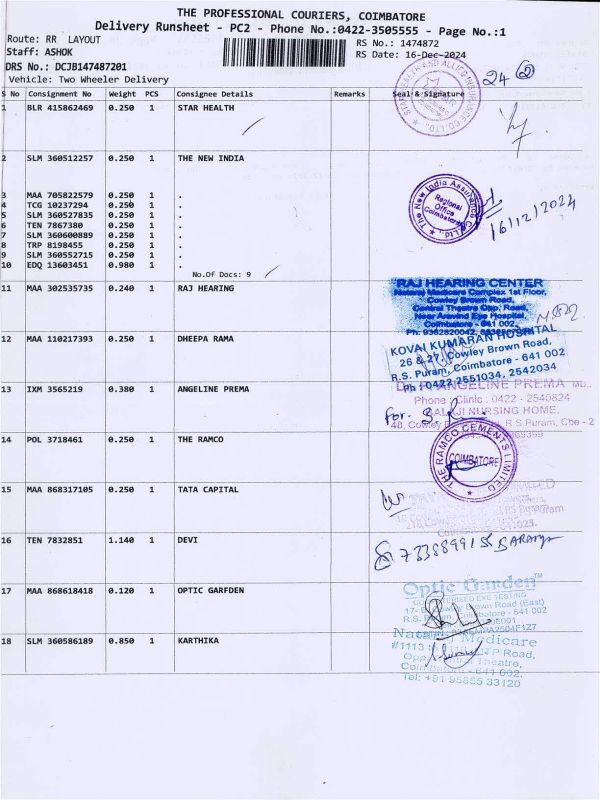 THE PROFESSIONAL COURIERS, COIMBATORE
Delivery Runsheet - PC2 - Phone No.:0422-3505555 - Page No.:1
Route: RR LAYOUT
RS No.: 1474872
Staff: ASHOK
RS Date: 16-Dec-2024
DRS No.: DCJB147487201
Vehicle: Two Wheeler Delivery
24 2
S No Consignment No Weight PCS Consignee Details Remarks Seal & Signature
1 BLR 415862469 0.250 1 STAR HEALTH
STAR HEALTH AND ALLIED INSURANCE CO. LTD.
2 SLM 360512257 0.250 1 THE NEW INDIA
3 MAA 705822579 0.250 1 .
4 TCG 10237294 0.250 1 .
5 SLM 360527835 0.250 1 .
6 TEN 7867380 0.250 1 .
7 SLM 360600889 0.250 1 .
8 TRP 8198455 0.250 1 .
9 SLM 360552715 0.250 1 .
10 EDQ 13603451 0.980 1 .
No.Of Docs: 9
The New India Assurance Co. Ltd.
Regional
Office
Coimbatore
16/12/2024
11 MAA 302535735 0.240 1 RAJ HEARING
RAJ HEARING CENTER
Medicare Complex 1st Floor,
Cowley Brown Road,
Central Theatre Opp. Road,
Near Aravind Eye Hospital
Coimbatore - 641 002.
12 MAA 110217393 0.250 1 DHEEPA RAMA
KOVAI KUMARAN HOSPITAL
26 & 27, Cowley Brown Road,
R.S. Puram, Coimbatore - 641 002
Ph : 0422 2551034, 2542034
13 IXM 3565219 0.380 1 ANGELINE PREMA
ANGELINE PREMA MD.,
Phone : Clinic : 0422 - 2540824
NURSING HOME,
48, Cowley R.S.Puram, Cbe - 2
for.
14 POL 3718461 0.250 1 THE RAMCO
THE RAMCO CEMENTS LIMITED
COIMBATORE
15 MAA 868317105 0.250 1 TATA CAPITAL
16 TEN 7832851 1.140 1 DEVI
17 MAA 868618418 0.120 1 OPTIC GARFDEN
Optic Garden™
COMPUTERISED EYE TESTING
Brown Road (East)
R.S. Coimbatore - 641 002
18 SLM 360586189 0.850 1 KARTHIKA
Medicare
#1113 TP Road,
Opp. Central Theatre,
Coimbatore - 641 002.
Tel: +91 95855 33120